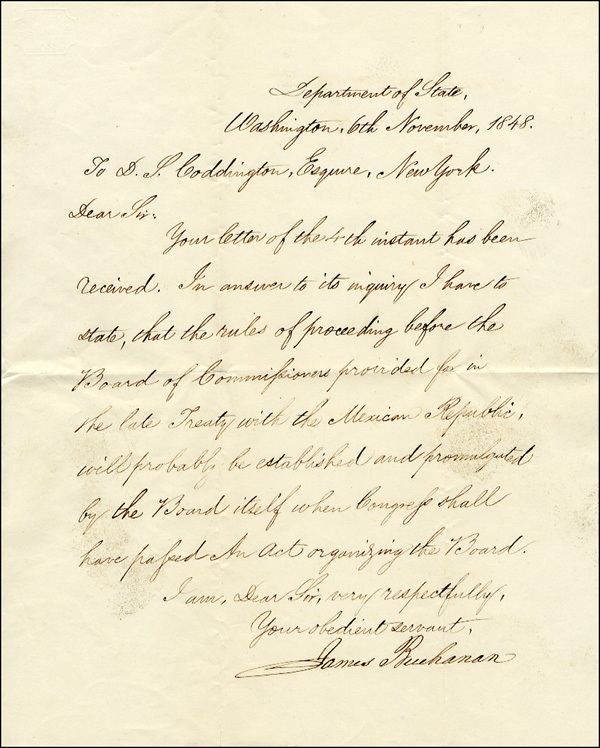 Department of State,
Washington, 6th November, 1848.
To D. S. Coddington, Esquire, New York.
Dear Sir:
Your letter of the 4th instant has been
received. In answer to its inquiry I have to
state, that the rules of proceeding before the
Board of Commissioners provided for in
the late Treaty with the Mexican Republic,
will probably be established and promulgated
by the Board itself when Congress shall
have passed An Act organizing the Board.
I am, Dear Sir, very respectfully,
Your obedient servant,
James Buchanan